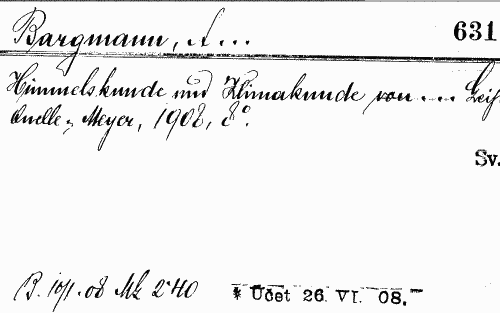 Bargmann, A... 631
Himmelskunde und Klimakunde von .... Leip
Quelle & Meyer, 1908, 8°.
Sv.
B. 10/1. 08 Mk 2·40 * Účet 26. VI. 08.